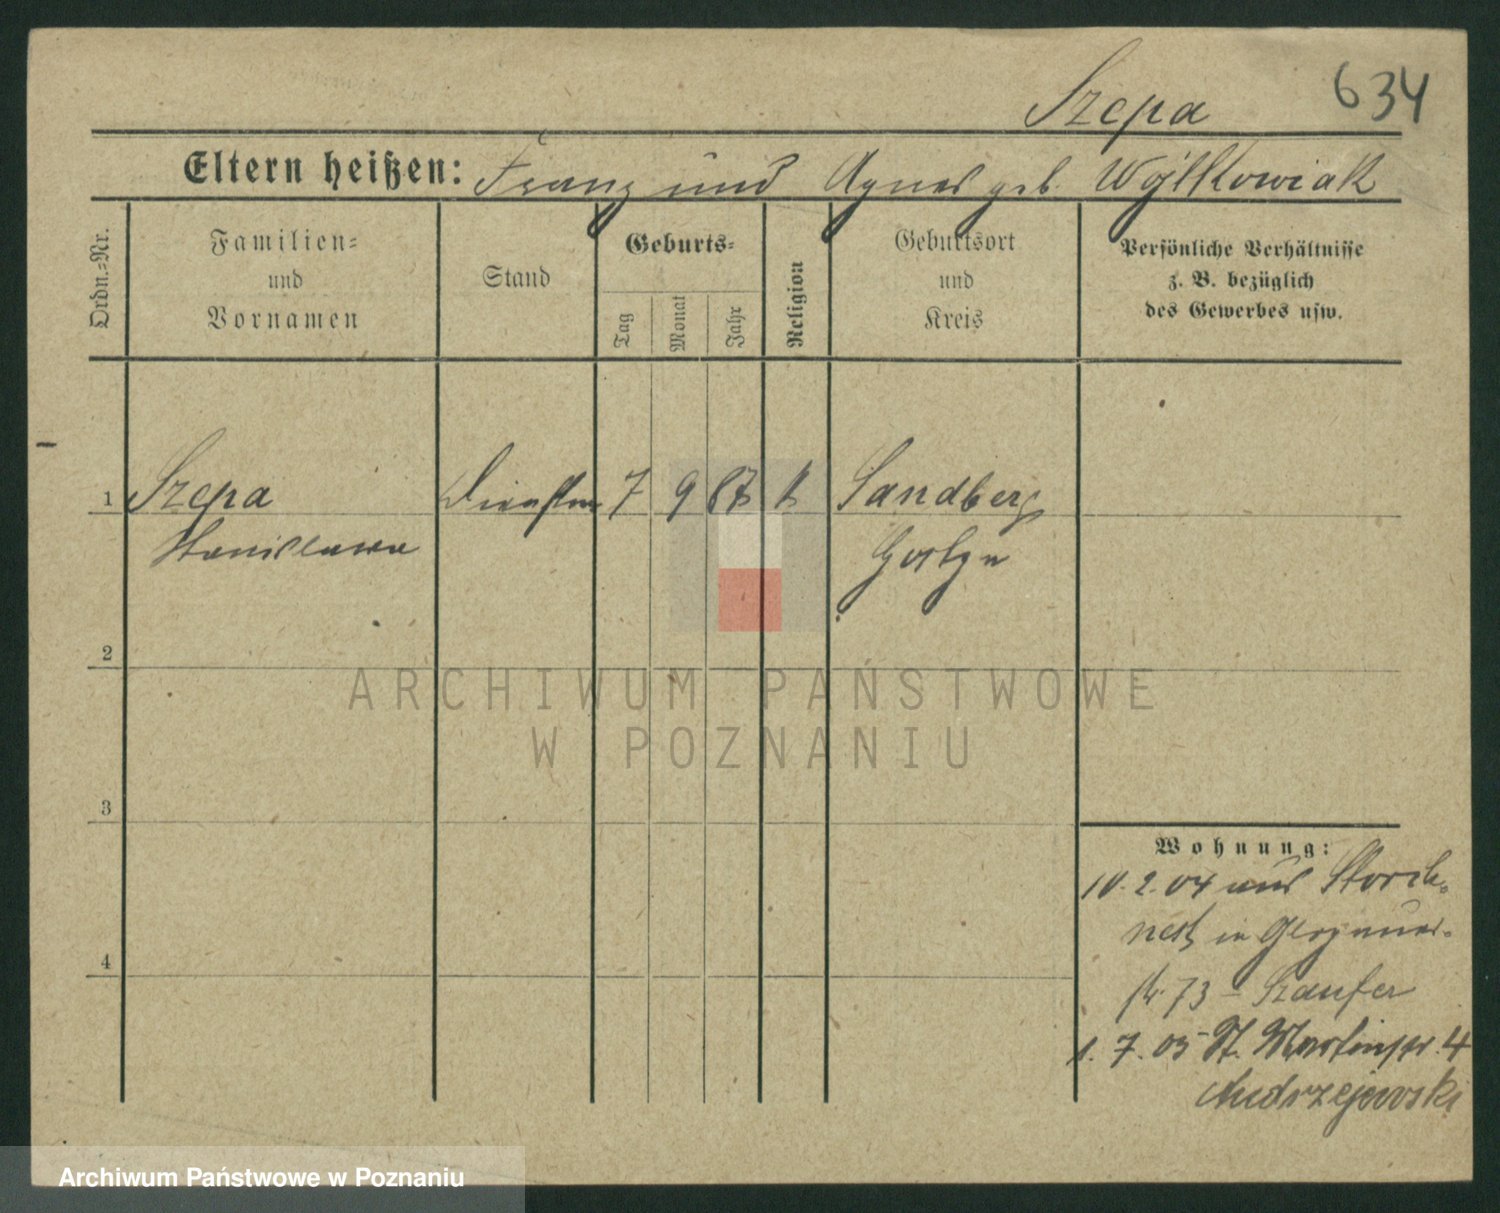 Szepa 634
Eltern heißen: Franz und Agnes geb. Wojtkowiak
Ordn.-Nr.
Familien-
und
Vornamen
Stand
Geburts-
Tag
Monat
Jahr
Religion
Geburtsort
und
Kreis
Persönliche Verhältnisse
z. B. bezüglich
des Gewerbes usw.
1 Szepa 7 9 87 k Sandberg
Stanislawa Gostyn
2
3
4
Wohnung:
10. 2. 04 aus Storch-
nest in
73 – Szaufer
1. 7. 05 St. Martinstr. 4
Andrzejewski
ARCHIWUM PAŃSTWOWE
W POZNANIU
Archiwum Państwowe w Poznaniu